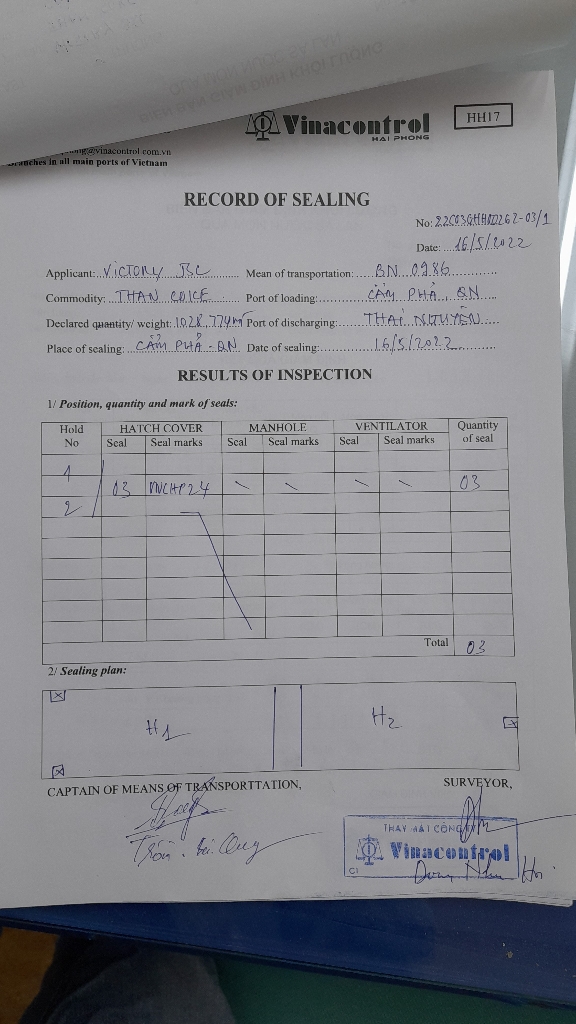 Vinacontrol
HAI PHONG
HH17
@vinacontrol.com.vn
Branches in all main ports of Vietnam
RECORD OF SEALING
No: 22C03GHH00262-03/1
Date: 16/5/2022
Applicant: VICTORY JSC Mean of transportation: BN 0986
Commodity: THAN COKE Port of loading: CẨM PHẢ, QN
Declared quantity/ weight: 1028,774 mt Port of discharging: THÁI NGUYÊN
Place of sealing: CẨM PHẢ - QN Date of sealing: 16/5/2022
RESULTS OF INSPECTION
1/ Position, quantity and mark of seals:
Hold No HATCH COVER MANHOLE VENTILATOR Quantity of seal
Seal Seal marks Seal Seal marks Seal Seal marks
1
03 VNCHP24 \ \ \ \ 03
2
Total 03
2/ Sealing plan:
H1 H2
CAPTAIN OF MEANS OF TRANSPORTTATION, SURVEYOR,
THAY MẶT CÔNG TY
Vinacontrol
C1
Trần